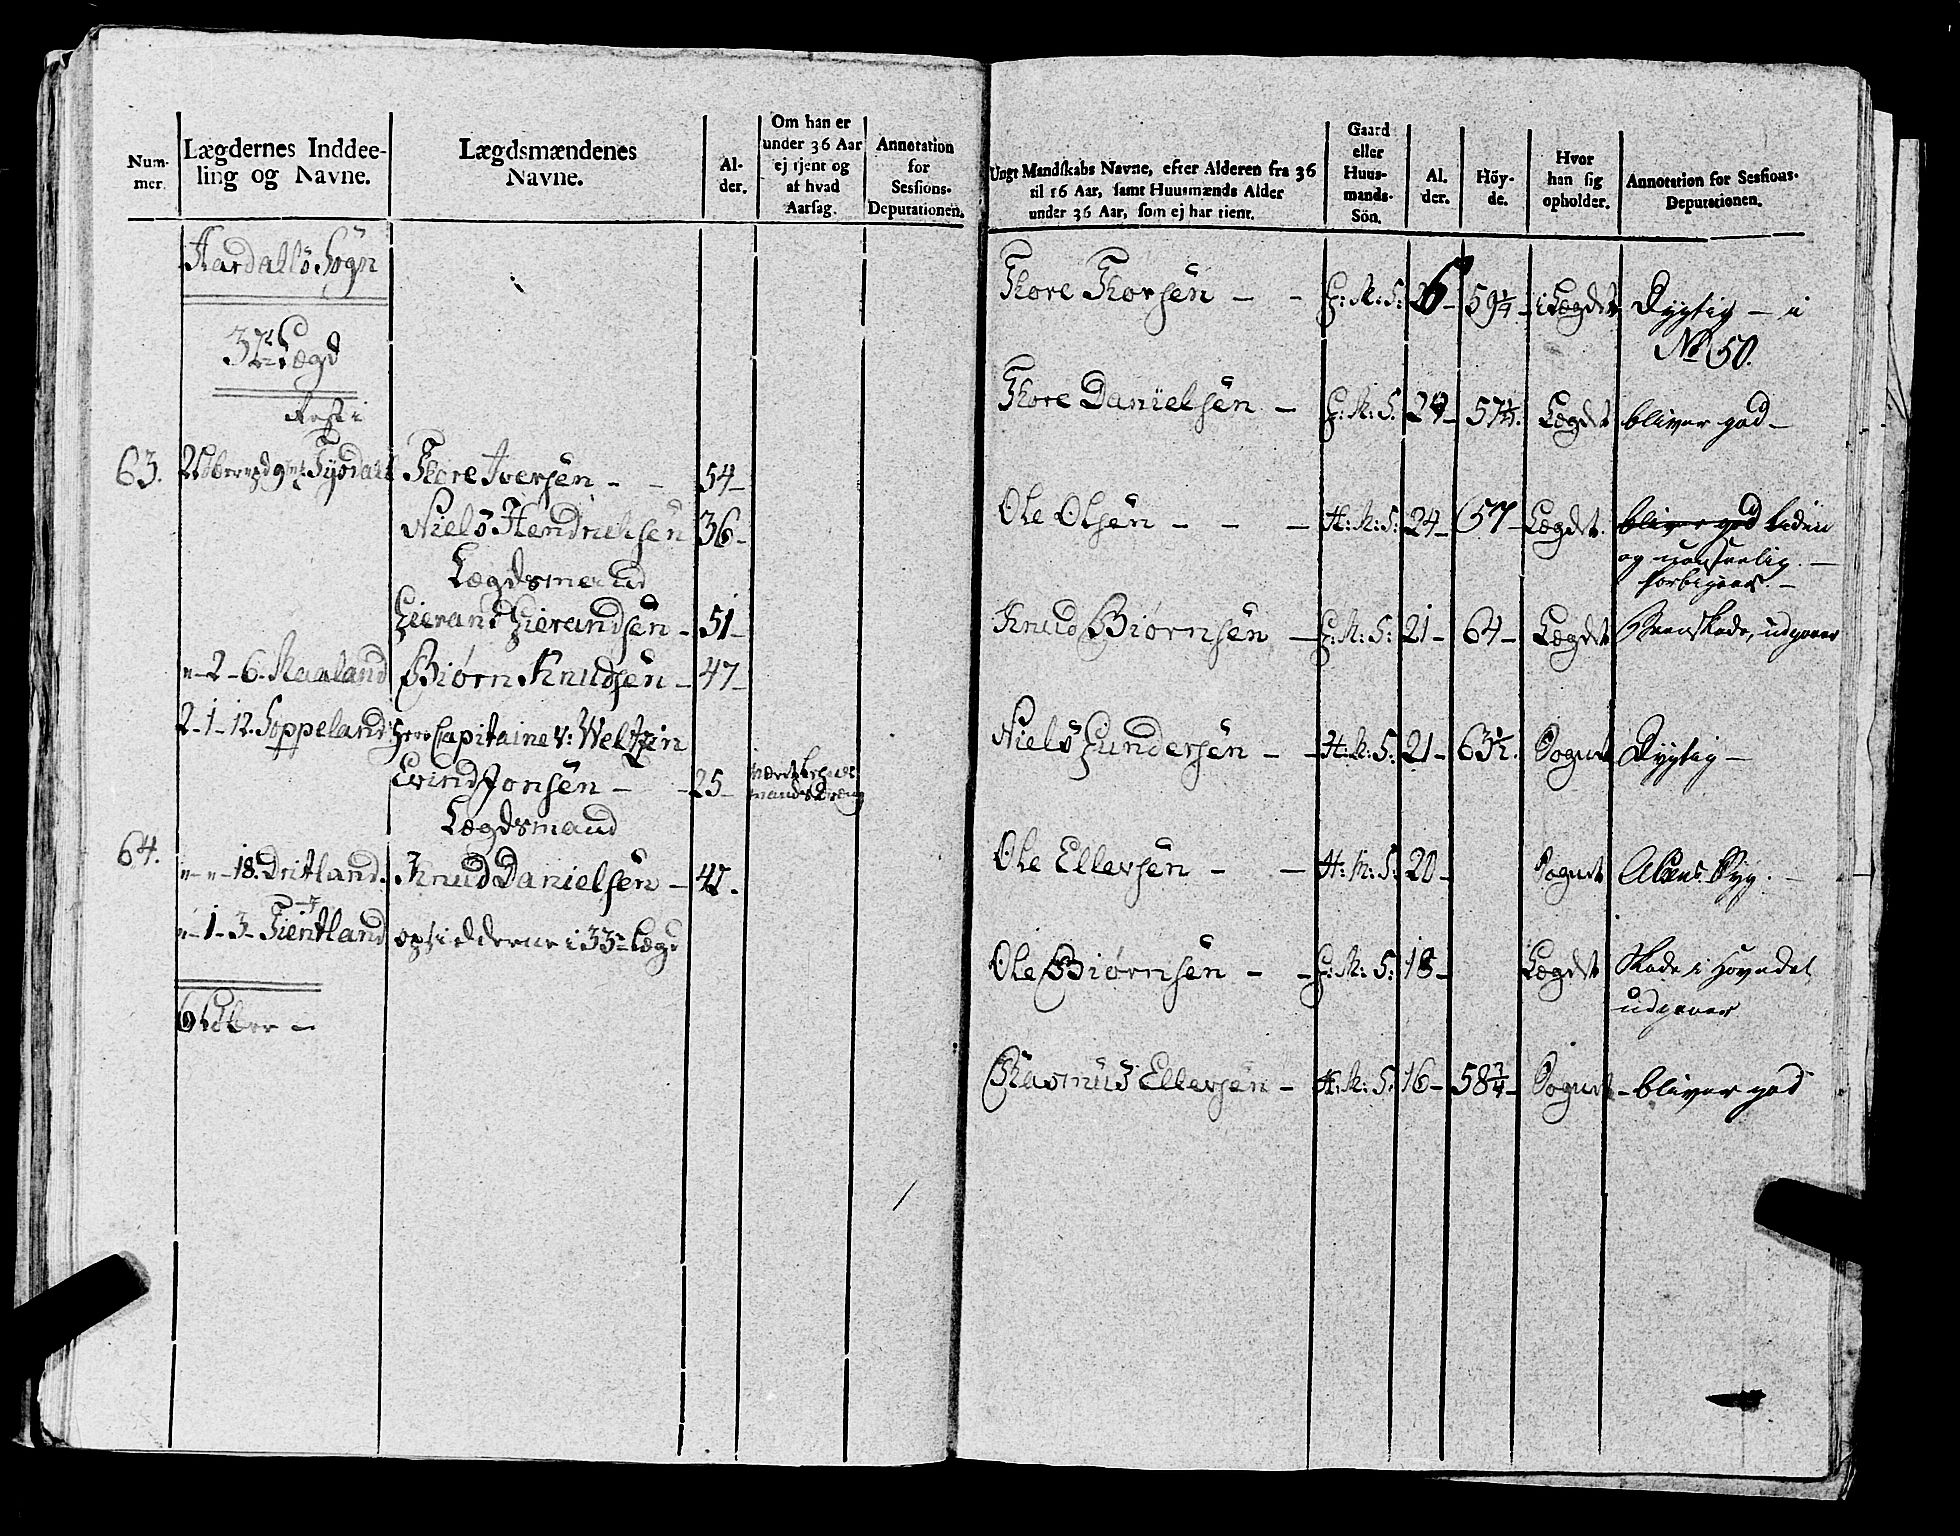 Num-
mer.
Lægdernes Inddee-
ling og Navne.
Lægdsmændenes
Navne.
Al-
der.
Om han er
under 36 Aar
ej tjent og
af hvad
Aarsag.
Annotation
for
Sessions-
Deputationen.
Aardalls Sogn
32te Lægd
Rest i
63. Tysdall Thore Iversen - - 54-
Niels Hendrichsen 36-
Lægdsmand
Gierand Gierandsen - 51-
"-2-6. Raaland Biørn Knudsen - 47-
2-1-12. Soppeland Herr Capitaine v: Weltzin
Evind Jonsen - - 25-
Lægdsmand
64.
"-"-18. Dritland. Knud Danielsen - 47-
"-1-3- Tientland opsidderne i 33te Lægd
6
Ungt Mandskabs Navne, efter Alderen fra 36
til 16 Aar, samt Huusmænds Alder
under 36 Aar, som ej har tient.
Gaard
eller
Huus-
mands-
Sön.
Al.
der.
Höy-
de.
Hvor
han sig
opholder.
Annotation for Sessions-
Deputationen.
Thore Thorsen - - G: M: S: 26- 59 1/4 - i Lægdet Dygtig - i
No 50.
Thore Danielsen - G: M: S. 24- 57 1/2. Lægdet bliver god-
Ole Olsen - - - H: M: S: 24- 57- Lægdet. bliver god liden
og
forbigaaes. -
Knud Biørnsen - G: M: S: 21- 64- Lægdet udgaaer
Niels Gundersen - - H: M: S: 21- 63 1/2. Sognet Dygtig -
Ole Ellevsen - - H: M: S: 20- Sognet
Ole Biørnsen - - G: M: S: 18- Lægdet Skade i Hovedet
udgaaer
Rasmus Ellevsen - H: M: S: 16- 58 3/4- Sognet - bliver god